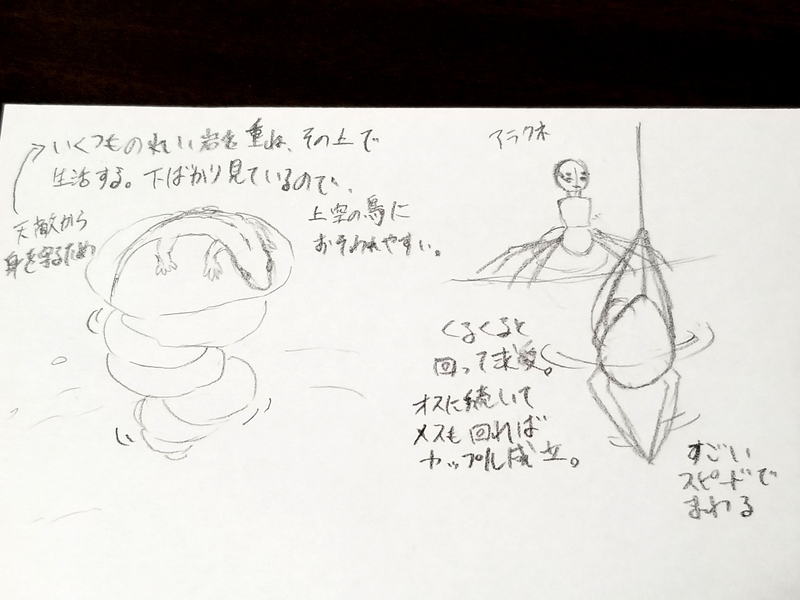 いくつもの丸い岩を重ね、その上で
生活する。下ばかり見ているので、
上空の鳥に
おそわれやすい。
天敵から
身を守るため
アラクネ
くるくると
回って求愛。
オスに続いて
メスも回れば
カップル成立。
すごい
スピードで
まわる